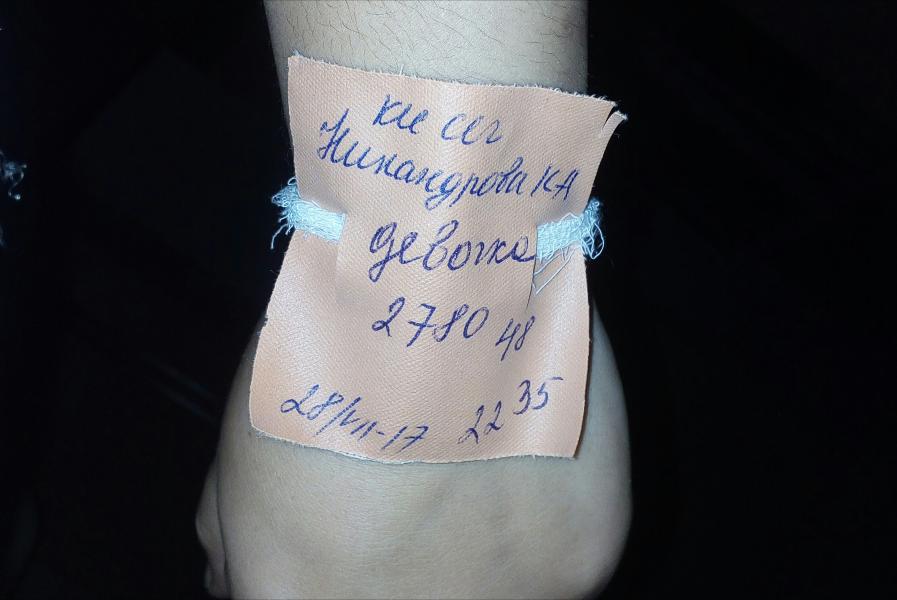 кие сег
Никандрова КА
девочка
2780 48
28/VII-17 22 35